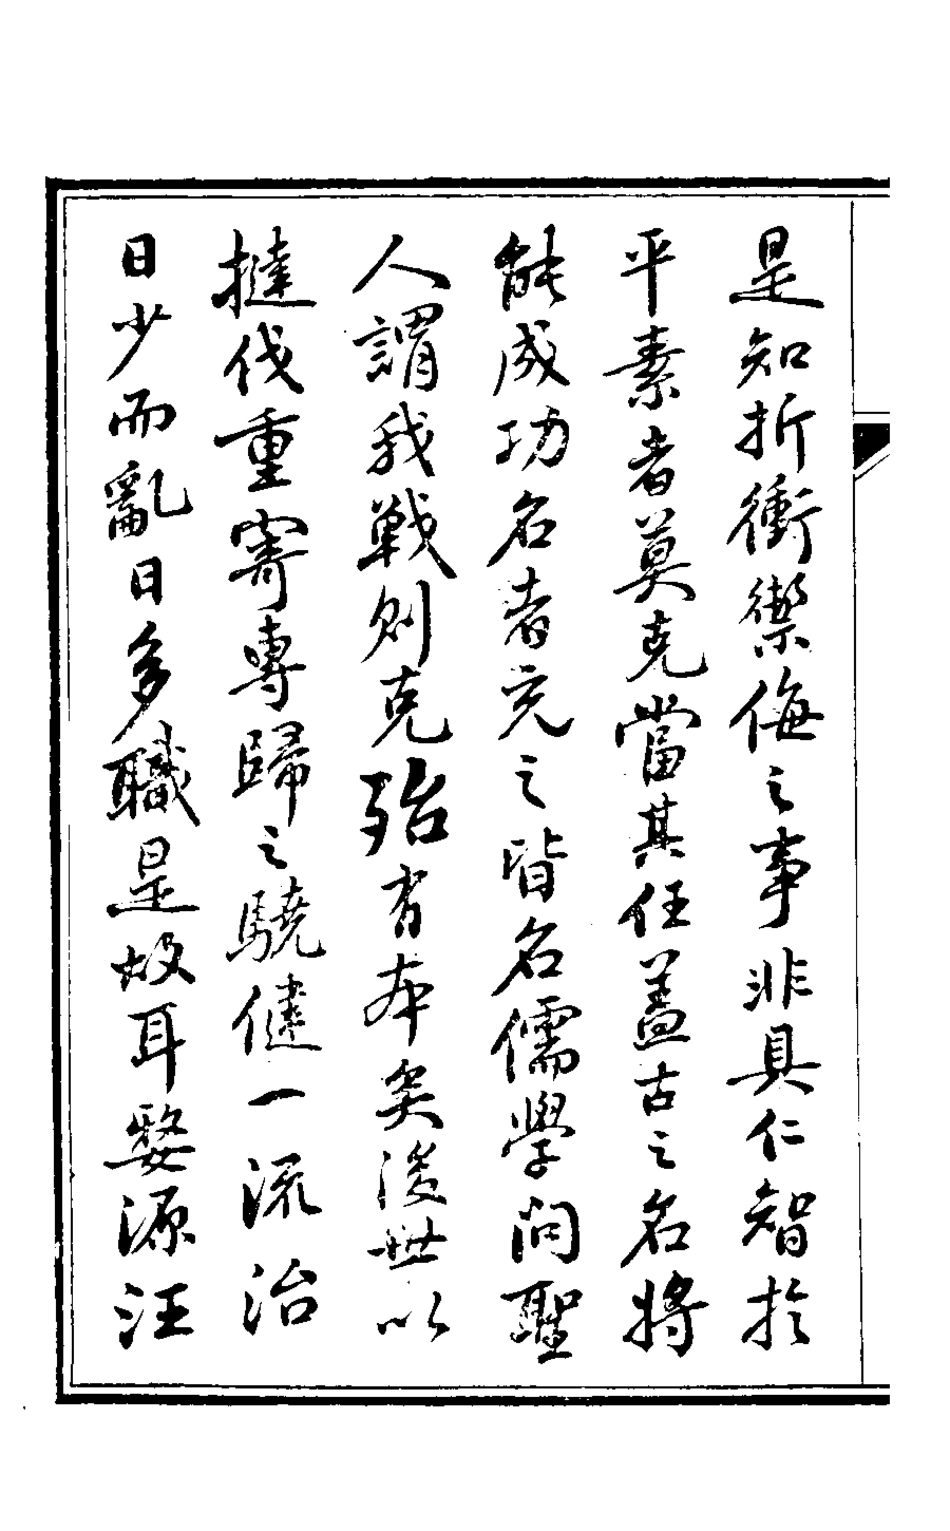 是知折衝禦侮之事非具仁智於
平素者莫克當其任蓋古之名將
能成功名者充之皆名儒學問聖
人謂我戰則克殆有本矣後世以
撻伐重寄專歸之驍健一流治
日少而亂日多職是故耳婺源汪